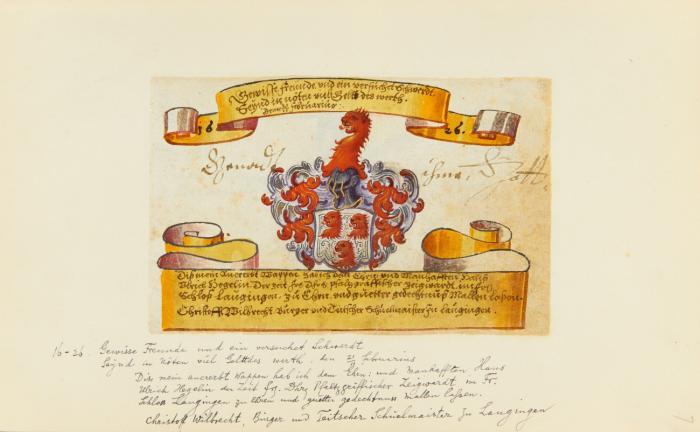 Gewisse freunde und ein versuchet Schwerdt.
Seÿnd in nöten vill Gelts des werth.
16 26.
Genad ihme Gott.
Diß mein Anererbt Wappen hab ich dem Ehrn: und Manhafften Hanß
Ulrich Hegelin Der Zeit Frs: Dhrs Pfalzgräffischer Zeigwardt im Frs:
Schloß Laugingen. Zu Ehrn und guetter gedechtnuß Mallen lassen.
Christoff Wilbrecht Burger und Teütscher Schuelmaister Zu Laugingen.
16-26 Gewisse Freunde und ein versuchet Schwerdt
Seÿnd in Nöten viel Geltdes werth. den 21 februarius
Dis mein anererbt Wappen hab ich dem Ehrn: und Manhafften Hans
Ulrich Hegelin der Zeit Fr. Dhr. Pfaltzgräffischer Zeigwerdt im Fr.
Schloss Laugingen zu Ehren und guetter gedechtnuss Mallen lassen.
Christoff Wilbrecht, Bürger und Teitscher Schüelmaister zu Laugingen